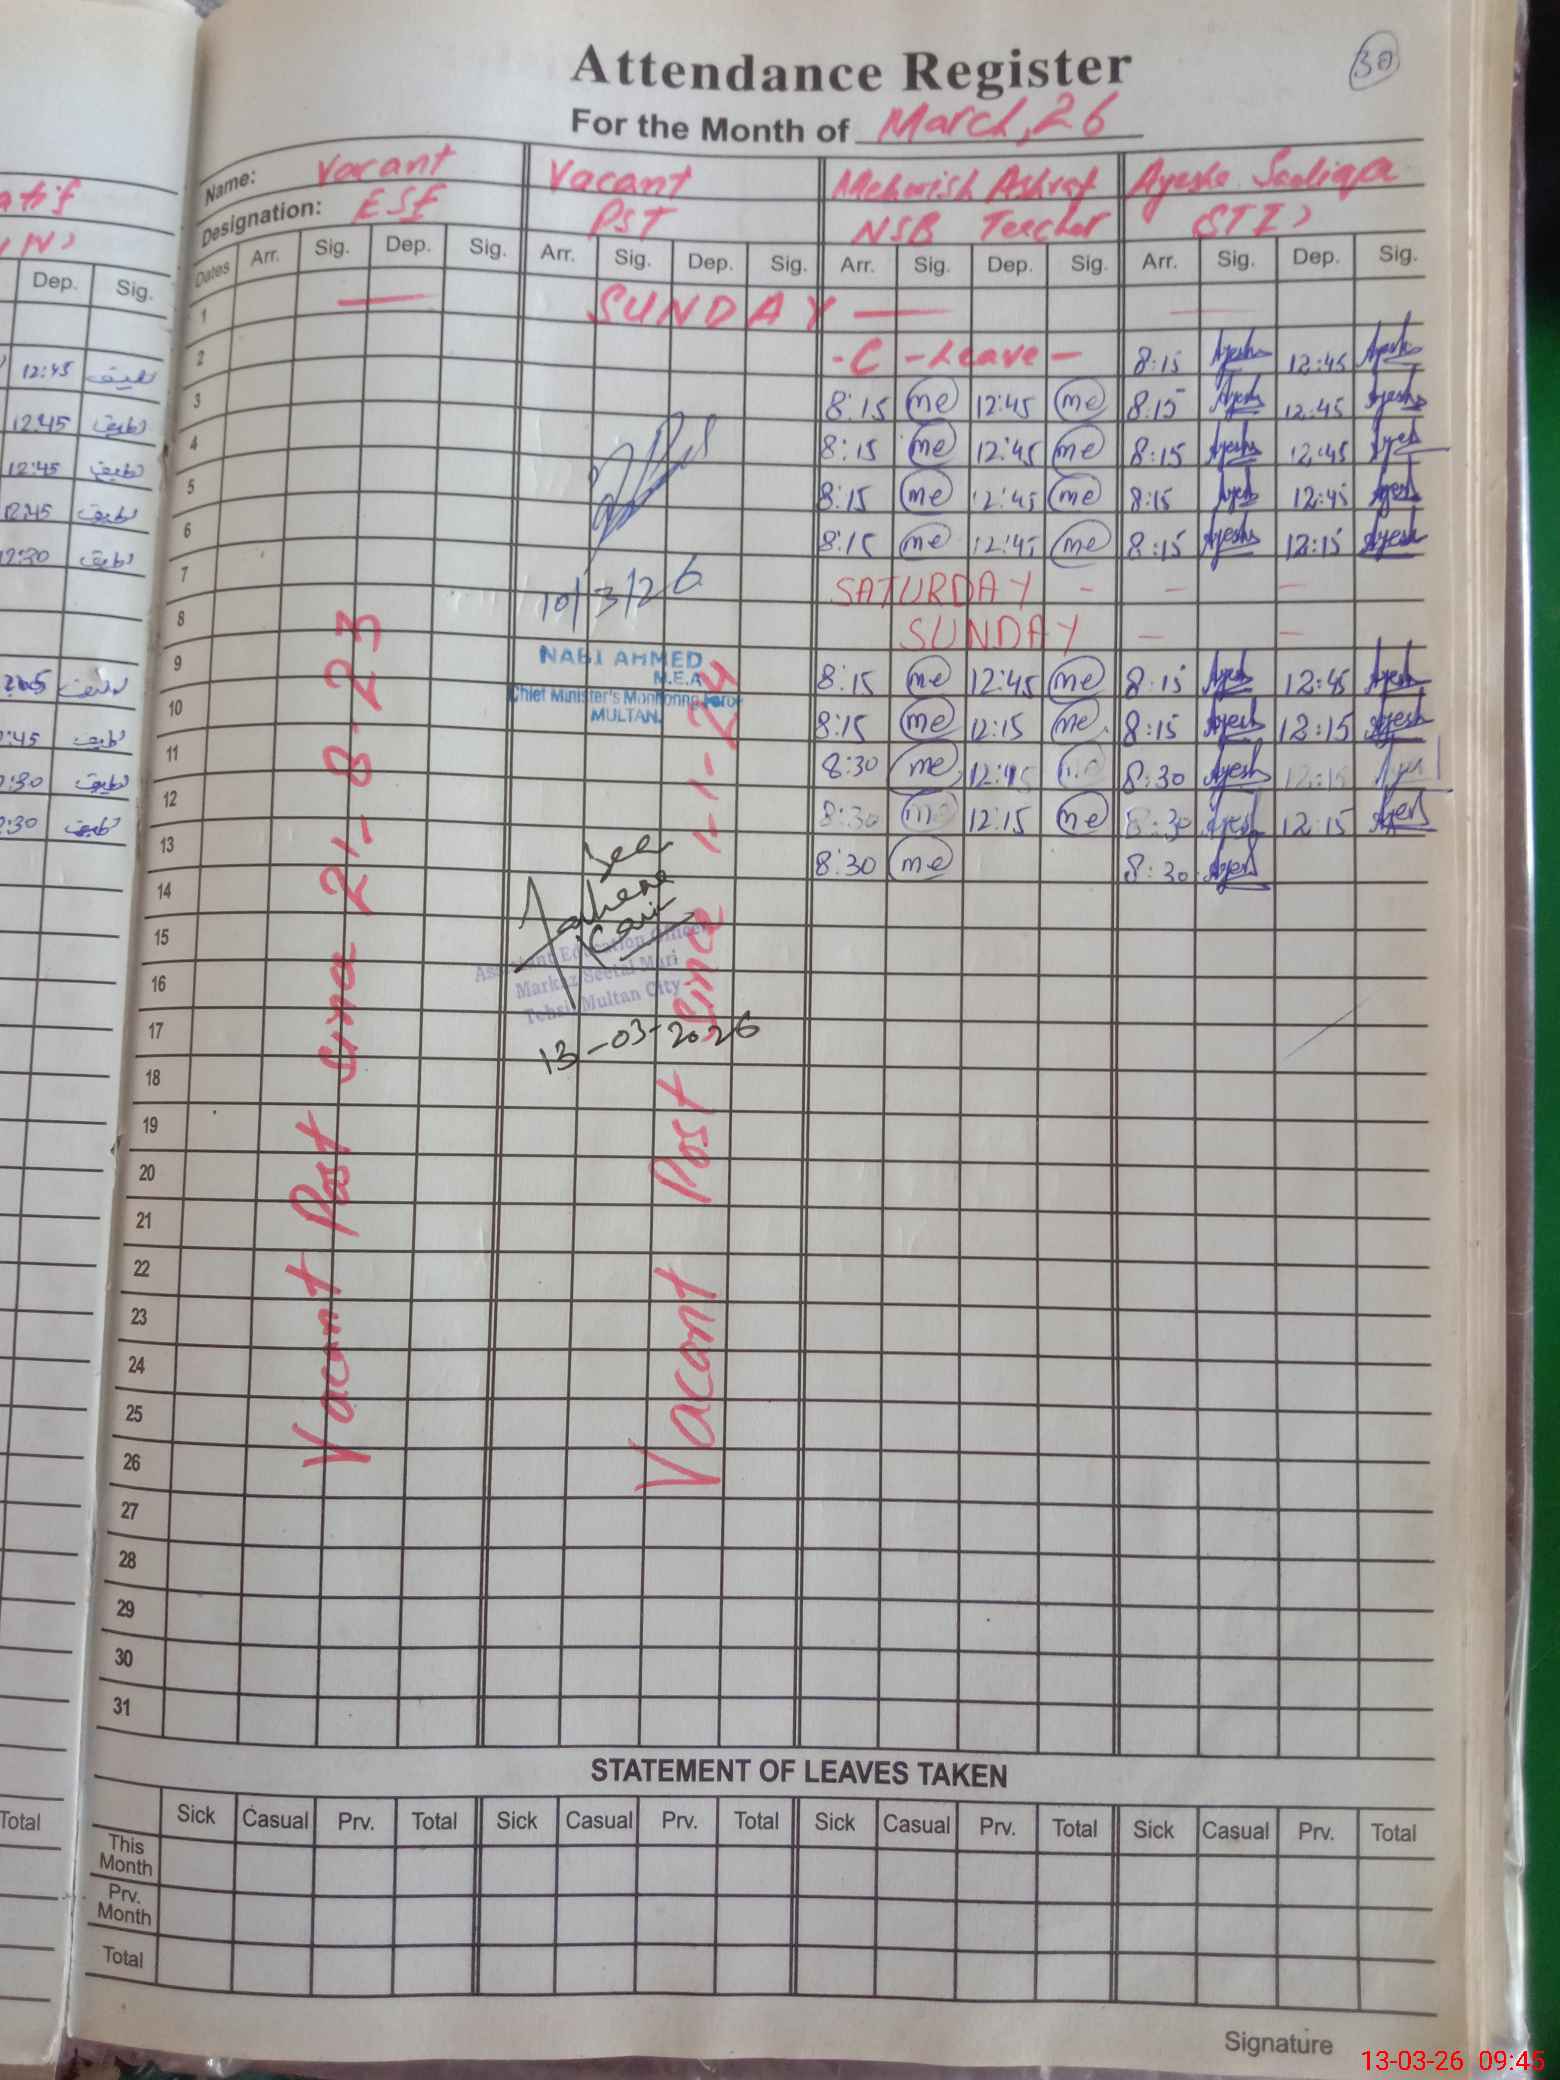 30
Attendance Register
For the Month of March, 26
Name: Vacant Vacant Mehwish Ashraf Ayesha Sadiqa
Designation: ESE PST NSB Teacher (STI)
Dates Arr. Sig. Dep. Sig. Arr. Sig. Dep. Sig. Arr. Sig. Dep. Sig. Arr. Sig. Dep. Sig.
1 — SUNDAY — —
2 - C - Leave - 8:15 Ayesha 12:45 Ayesha
3 8:15 me 12:45 me 8:15 Ayesha 12:45 Ayesha
4 8:15 me 12:45 me 8:15 Ayesha 12:45 Ayesha
5 8:15 me 12:45 me 8:15 Ayesha 12:45 Ayesha
6 8:15 me 12:45 me 8:15 Ayesha 12:15 Ayesha
7 SATURDAY - - -
8 SUNDAY - -
9 8:15 me 12:45 me 8:15 Ayesha 12:45 Ayesha
10 8:15 me 12:15 me 8:15 Ayesha 12:15 Ayesha
11 8:30 me 12:45 8:30 Ayesha 12:15
12 8:30 me 12:15 me 8:30 Ayesha 12:15 Ayesha
13 8:30 me 8:30 Ayesha
14
15
16
17
18
19
20
21
22
23
24
25
26
27
28
29
30
31
Vacant Post since 21-8-23
Vacant Post since 1-11-24
10/3/26
NABI AHMED
M.E.A
Chief Minister's Monitoring Force
MULTAN.
Assistant Education Officer
Markaz Seetal Mari
Tehsil Multan City
13-03-2026
STATEMENT OF LEAVES TAKEN
Sick Casual Prv. Total Sick Casual Prv. Total Sick Casual Prv. Total Sick Casual Prv. Total
This Month
Prv. Month
Total
Signature
13-03-26 09:45
Dep. Sig.
12:45 لطیف
12:45 لطیف
12:45 لطیف
12:45 لطیف
12:30 لطیف
لطیف
:45 لطیف
:30 لطیف
:30 لطیف
Total